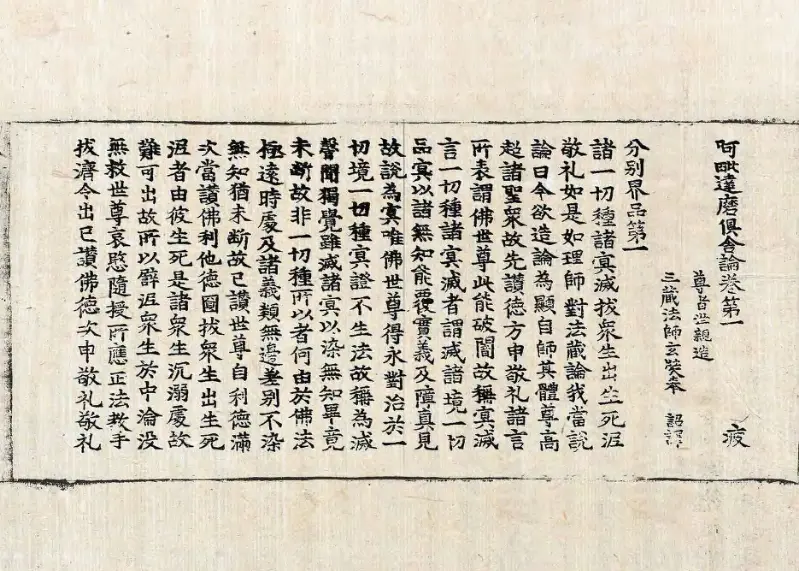 阿毗達磨俱舍論卷第一 疲
尊者世親造
三藏法師玄奘奉 詔譯
分別界品第一
諸一切種諸冥滅拔衆生出生死泥
敬礼如是如理師對法藏論我當說
論曰今欲造論為顯自師其體尊高
超諸聖衆故先讚德方申敬礼諸言
所表謂佛世尊此能破闇故稱冥滅
言一切種諸冥滅者謂滅諸境一切
品冥以諸無知能覆實義及障真見
故說為冥唯佛世尊得永對治於一
切境一切種冥證不生法故稱為滅
聲聞獨覺雖滅諸冥以染無知畢竟
未斷故非一切種所以者何由於佛法
極遠時處及諸義類無邊差別不染
無知猶未斷故已讚世尊自利德滿
次當讚佛利他德圓拔衆生出生死
泥者由彼生死是諸衆生沉溺處故
難可出故所以譬泥衆生於中淪没
無救世尊哀愍隨授所應正法教手
拔濟令出已讚佛德次申敬礼敬礼